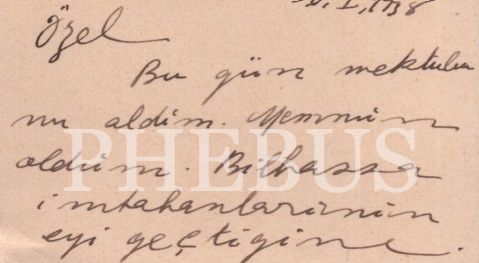 . I, 1938
Özel
Bu gün mektubu
nu aldim. Memnun
oldum. Bilhassa
imtahanlarinin
eyi geçtigine.
PHEBUS